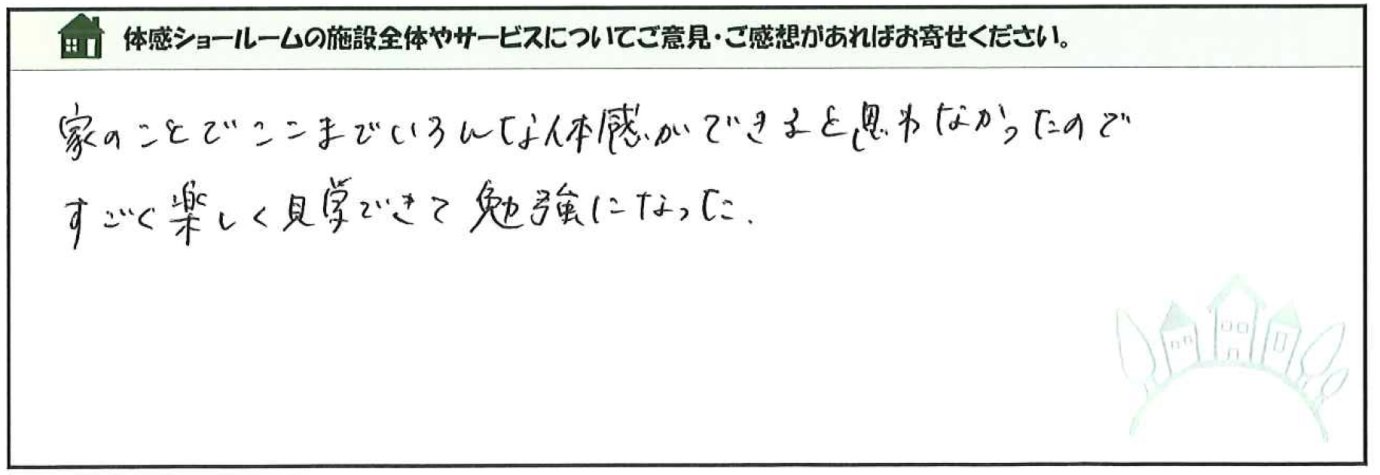 体感ショールームの施設全体やサービスについてご意見・ご感想があればお寄せください。
家のことでここまでいろんな体感ができると思わなかったので
すごく楽しく見学できて勉強になった.